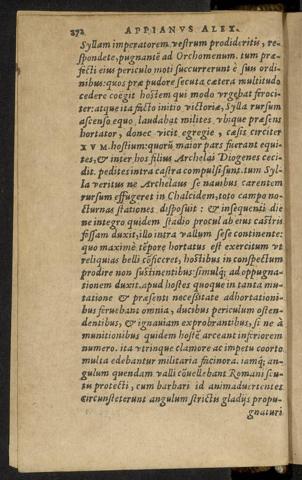 272 APPIANVS ALEX.
Syllam imperatorem vestrum prodideritis, re-
spondete, pugnantē ad Orchomenum. tum præ-
fecti eius periculo moti succurrerunt è suis ordi-
nibus: quos præ pudore secuta cætera multitudo
cedere coëgit hostem qui modo vrgebat feroci-
ter: atque ita facto initio victoriæ, Sylla rursum
ascenso equo, laudabat milites vbique præsens
hortator, donec vicit egregie, cæsis circiter
XVM. hostium: quorū maior pars fuerant equi-
tes, & inter hos filius Archelai Diogenes ceci-
dit. pedites intra castra compulsi sunt. tum Syl-
la veritus ne Archelaus se nauibus carentem
rursum effugeret in Chalcidem, toto campo no-
cturnas stationes disposuit: & insequenti die
ne integro quidem stadio procul ab eius castris
fossam duxit, illo intra vallum sese continente:
quo maximè tēpore hortatus est exercitum vt
reliquias belli cōficeret, hostibus in conspectum
prodire non sustinentibus: simulq; ad oppugna-
tionem duxit. apud hostes quoque in tanta mu-
tatione & præsenti necessitate adhortationi-
bus feruebant omnia, ducibus periculum osten-
dentibus, & ignauiam exprobrantibus, si ne à
munitionibus quidem hostē arceant inferiorem
numero. ita vtrinque clamore ac impetu coorto
multa edebantur militaria facinora. iamq; an-
gulum quendam valli cōuellebant Romani scu-
tis protecti, cum barbari id animaduertentes
circunsteterunt angulum strictis gladijs propu-
gnaturi